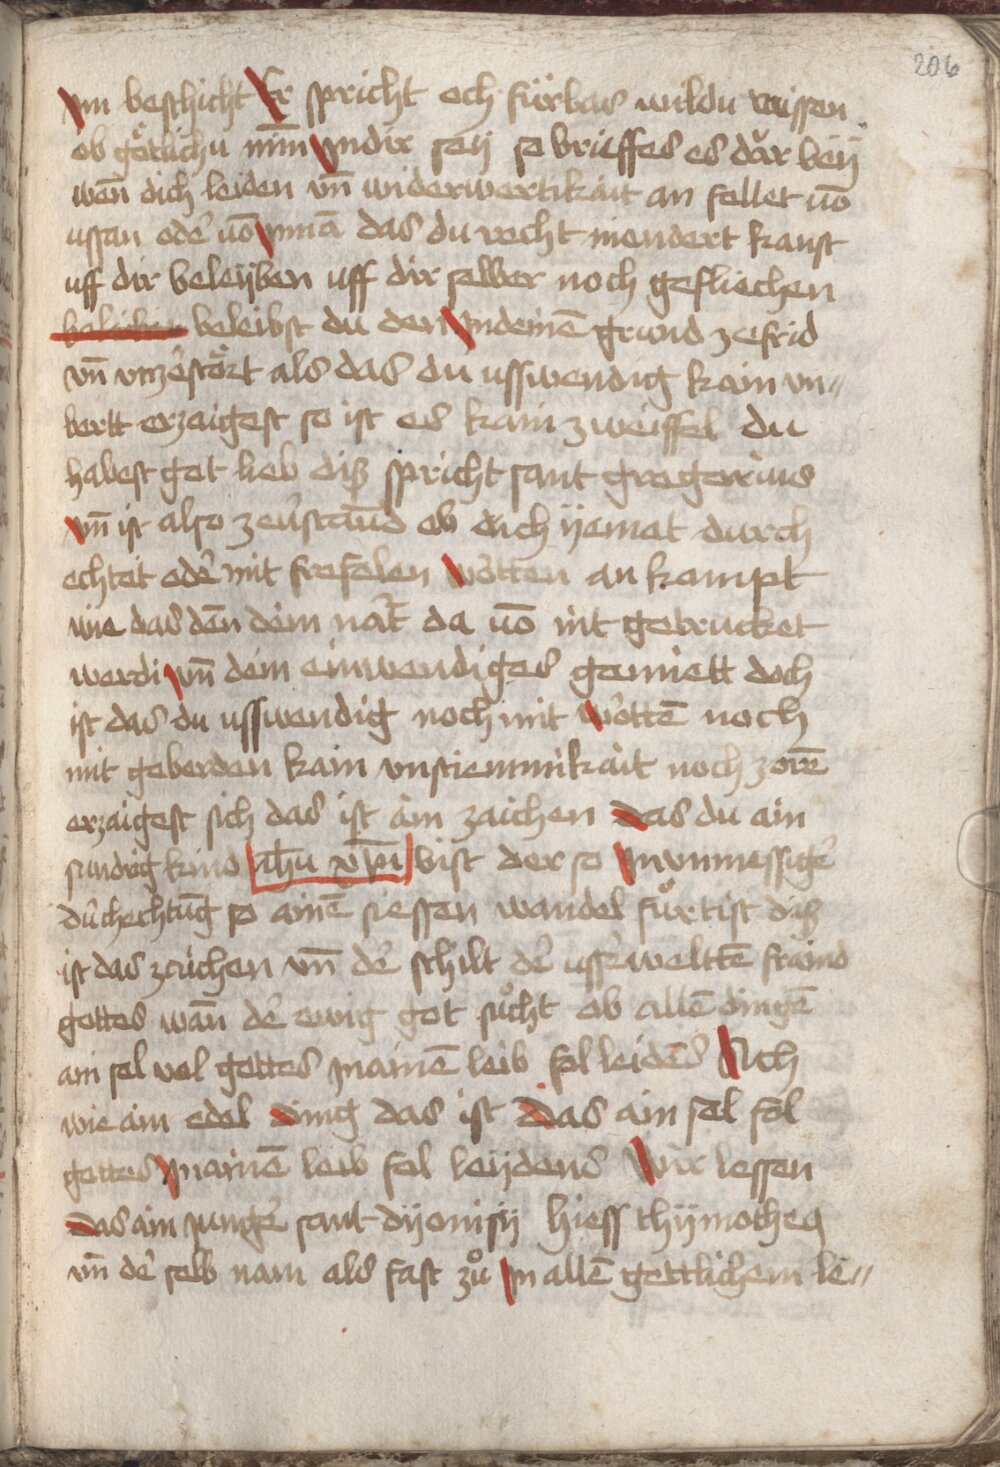 206
im beschicht Er spricht och fürbas wildu wissen
ob götlichu mīn in dir seÿ so brieffes es dar beÿ
wan̄ dich leiden vn̄ widerwertikait an fellet vō
ussan oder vō innā das du recht niendert kanst
uff dir beleÿben uff dir selber noch gefliechen
beleibst du den in deinē grund ze frid
vn̄ vnzerstört als das du usswendig kain vn〃
bertt erzaigest so ist es kain zweiffel du
habest got lieb diß spricht sant gregorius
vn̄ ist also ze verstand ob dich ÿemat durch
echtet oder mit frefelen worten an kompt
wie das dan̄ dein nat̄ da vō nit getrucket
werdi vn̄ dein einwendiges gemiett doch
ist das du usswendig noch mit wortē noch
mit geberden kain vnstiemmikait noch zorē
erzaigest sich das ist ain zaichen das du ain
sundrig kind ih̄u xp̄i bist der so in vnmessiger
durchechtūg so ainē siessen wandel fürtist diß
ist das zaichen vn̄ der schilt der usserweltē fraind
gottes wan̄ der ewig got sůcht ob allē dingē
ain sel vol gottes in ainē leib fol leidēs Sich
wie ain edel ding das ist das ain sel fol
gottes in ainē leib fol leÿdens Wir lessen
das ain junger sant dÿonisÿ hiess thÿmotheo
vn̄ der selb nam als fast zů in allē gottlichem le〃